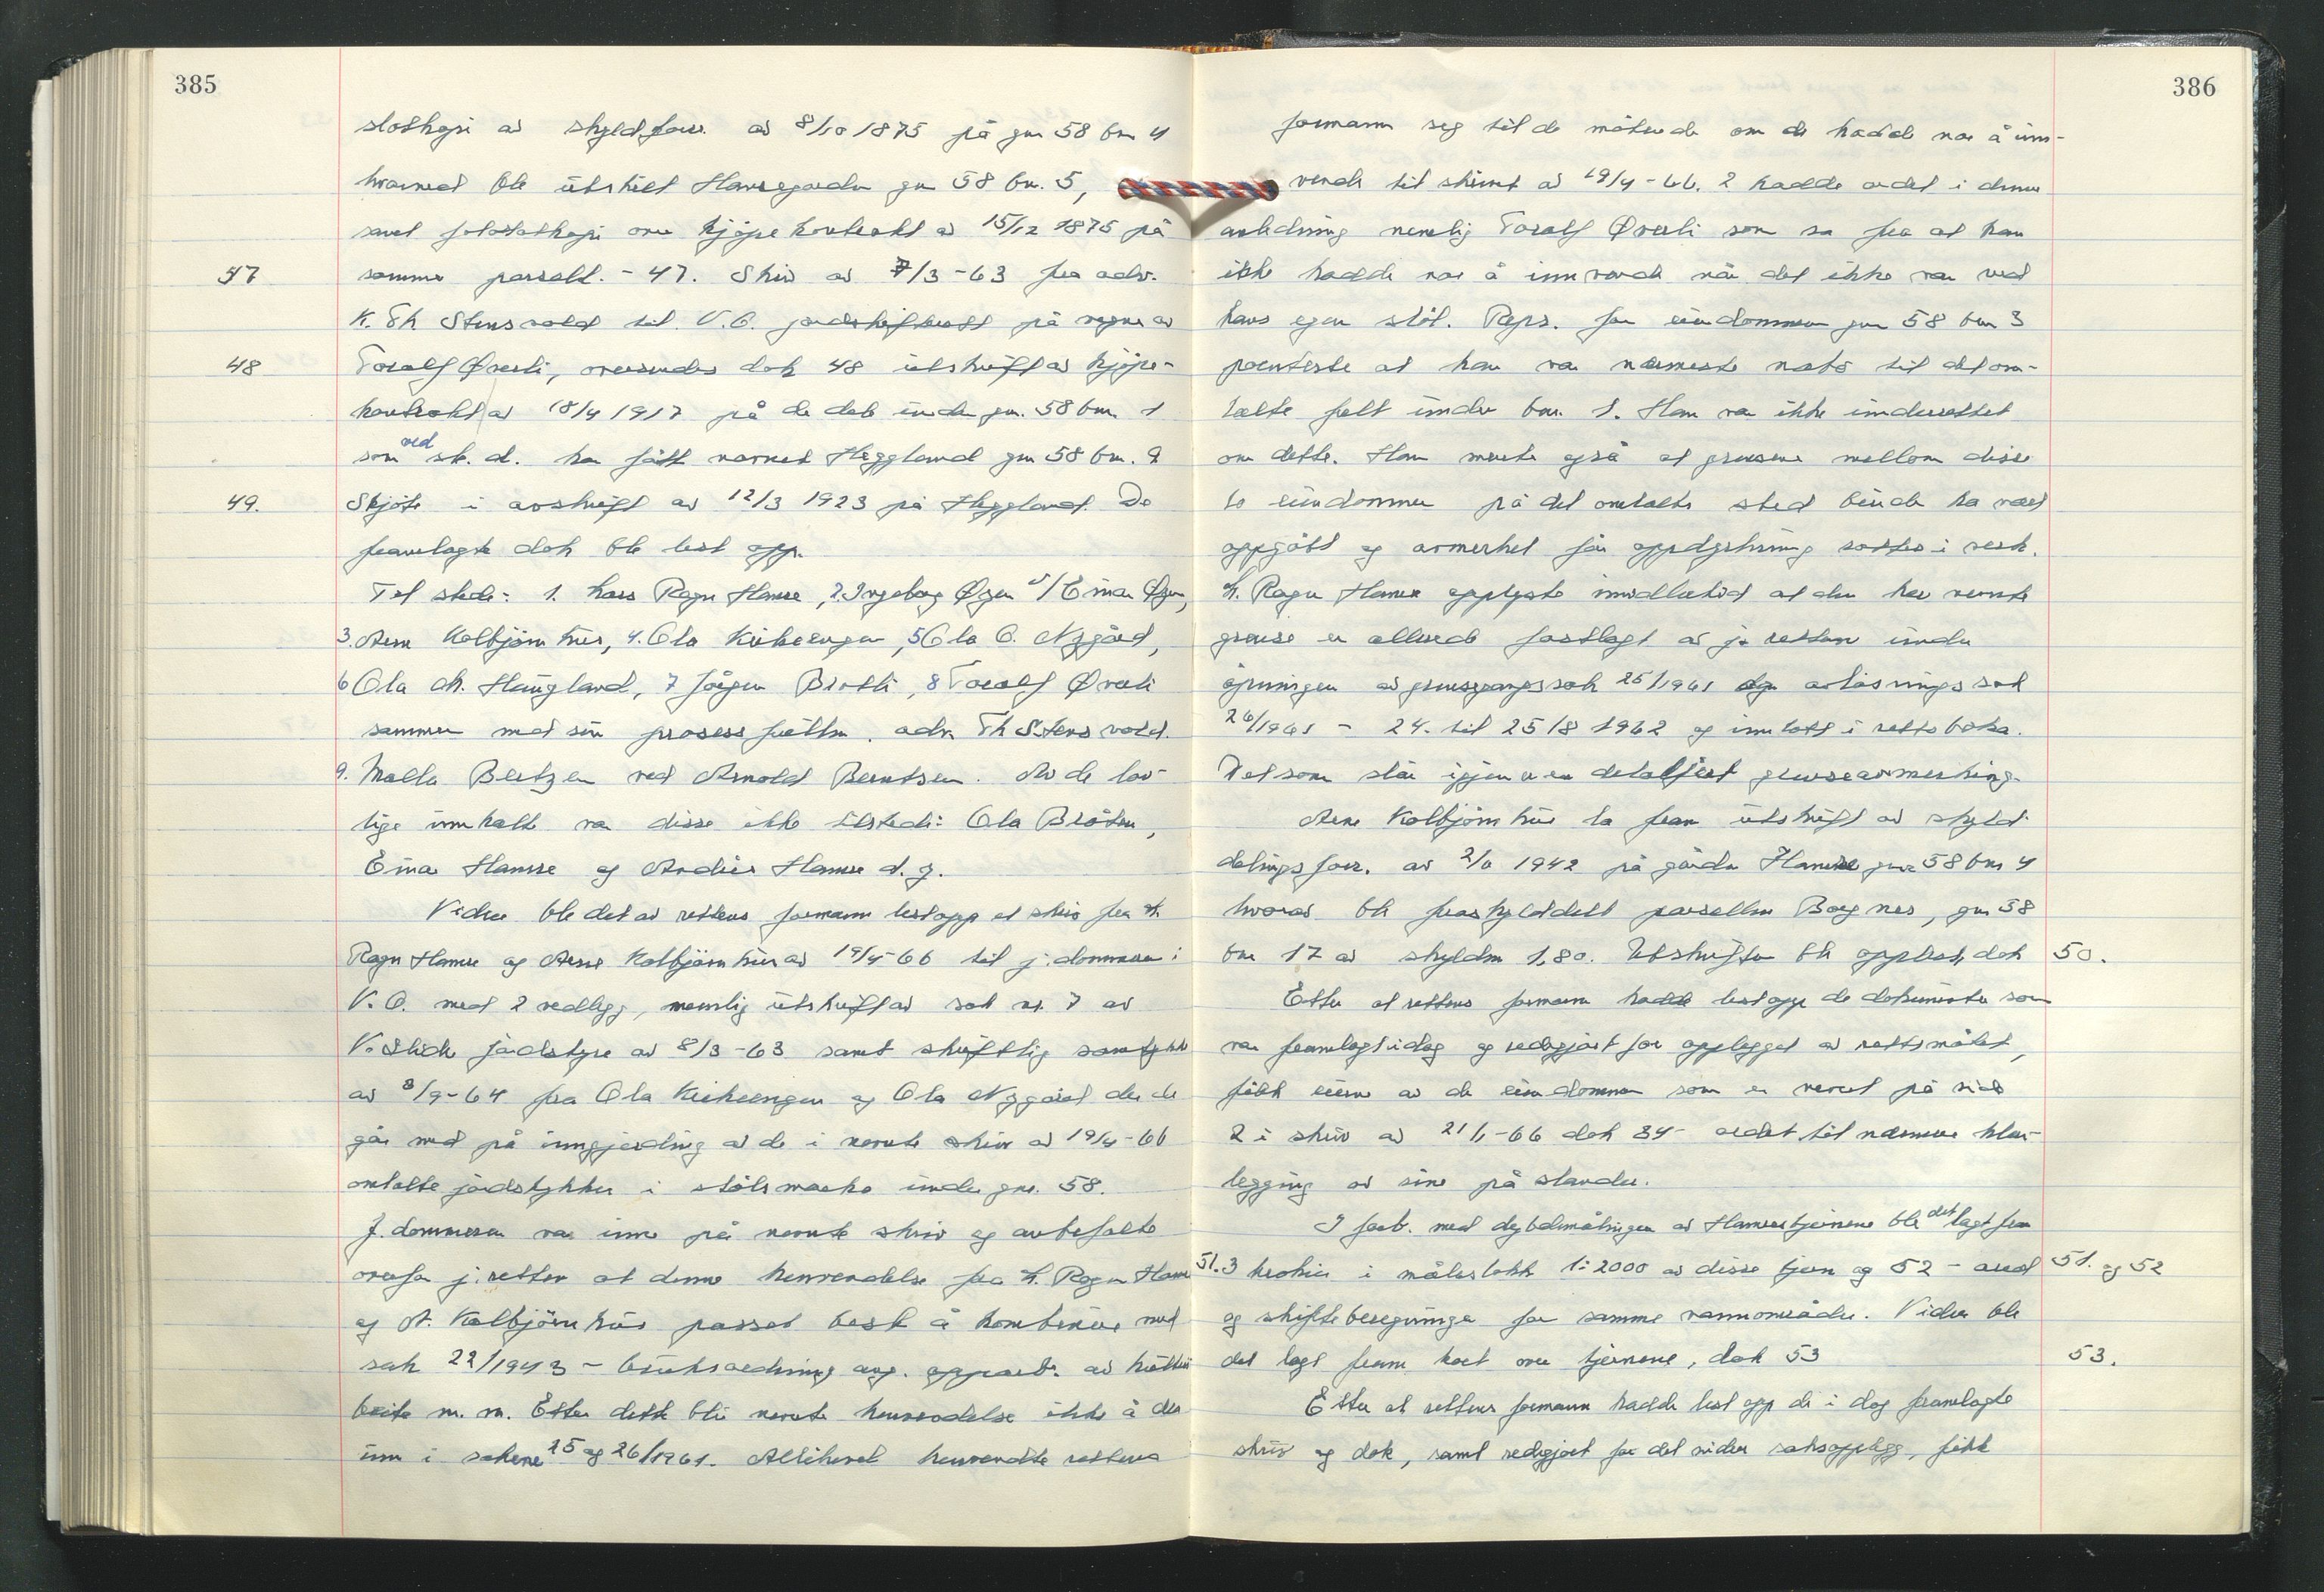 385
statkopi av skyldforr. av 8/10 1875 på gnr 58 bnr 4
hvorved ble utskilt Hansegarden gnr 58 bnr. 5,
samt fotostatkopi over kjøpekontrakt av 15/12 1875 på
57 samme parsell. - 47. Skriv av 7/3-63 fra adv.
K. Th Stensvold til V.O. jordskifterett på vegne av
48 Toralf Øverli, oversendes dok 48 utskrift av kjøpe-
kontrakt av 18/4 1917 på de deb under gnr. 58 bnr. 1
som ved sk. d. har fått navnet Heggland gnr 58 bnr. 9
49. Skjøte i avskrift av 12/3 1923 på Heggland. De
framlagte dok ble lest opp.
Til stede: 1. hrs Ragn Hamre, 2. Ingeborg Øyen v/ Einar Øyen,
3. Arne Kolbjørnhus, 4. Ola Kirkeengen, 5 Ola O. Nygård,
6 Ola M. Haugland, 7 Jørgen Brotli, 8 Toralf Øverli
sammen med sin prosessfullm. adv. Th Stensvold.
9. Malla Bertzen ved Arnold Berntsen. Av de lov-
lige innkalte var disse ikke tilstede: Ola Bråten,
Einar Hamre og Andris Hamre d. y.
Videre ble det av rettens formann lest opp et skriv fra H.
Ragn Hamre og Arne Kolbjørnhus av 19/4-66 til j. dommeren i
V. O. med 2 vedlegg, nemlig utskrift av sak nr. 7 av
V. Slidre jordstyre av 8/3-63 samt skriftlig samtykke
av 3/9-64 fra Ola Kirkeengen og Ola Nygård der de
går med på inngjerding av de i nevnte skriv av 19/4-66
omtalte jordstykker i stølsmarka under gnr. 58.
J. dommeren var inne på nevnte skriv og anbefalte
overfor j. retten at denne henvendelse fra H. Ragn Hamre
og A. Kolbjørnhus passet best å kombinere med
sak 22/1943 - bruksordning ang. opparb. av kultur
beite m. m. Etter dette blir nevnte henvendelse ikke å dra
inn i sakene 25 og 26/1961. Allikevel henvendte rettens
386
formann seg til de møtende om de hadde noe å inn-
vende til skrivet av 19/4-66. 2 hadde ordet i denne
anledning nemlig Toralf Øverli som sa fra at han
ikke hadde noe å innvende når det ikke var ved
hans egen støl. Reps. for eiendommen gnr 58 bnr 3
poenterte at han var nærmeste nabo til det om-
talte felt under bnr. 1. Han var ikke underrettet
om dette. Han mente også at grensene mellom disse
to eiendommer på det omtalte sted burde ha vært
oppgått og avmerket før oppdyrkning sattes i verk.
H. Ragn Hamre opplyste imidlertid at den her nevnte
grense er allerede fastlagt av j. retten under
åpningen av grensegangssak 25/1961 og avløsningssak
26/1961 - 24. til 25/8 1962 og inntatt i rettsboka.
Det som står igjen er en detaljert grenseavmerking.
Arne Kolbjørnhus la fram utskrift av skyld-
delingsforr. av 2/10 1942 på gården Hamre gnr 58 bnr 4
hvorav ble fraskylddelt parsellen Bergnes, gnr 58
bnr 17 av skyldm 1,80. Utskriften ble opplest, dok 50.
Etter at rettens formann hadde lest opp de dokumenter som
var framlagt idag og redegjort for opplegget av rettsmøtet,
fikk eierne av de eiendommer som er nevnt på side
2 i skriv av 21/1-66 dok 34 - ordet til nærmere klar-
legging av sine påstander.
I forb. med dybdemålingen av Hamretjernene ble det lagt fram
51. 3 krokier i målestokk 1:2000 av disse tjern og 52 - areal 51. og 52
og skifteberegninger for samme vannområder. Videre ble
det lagt fram kart over tjernene, dok 53 53.
Etter at rettens formann hadde lest opp de i dag framlagte
skriv og dok, samt redegjort for det videre saksopplegg, fikk